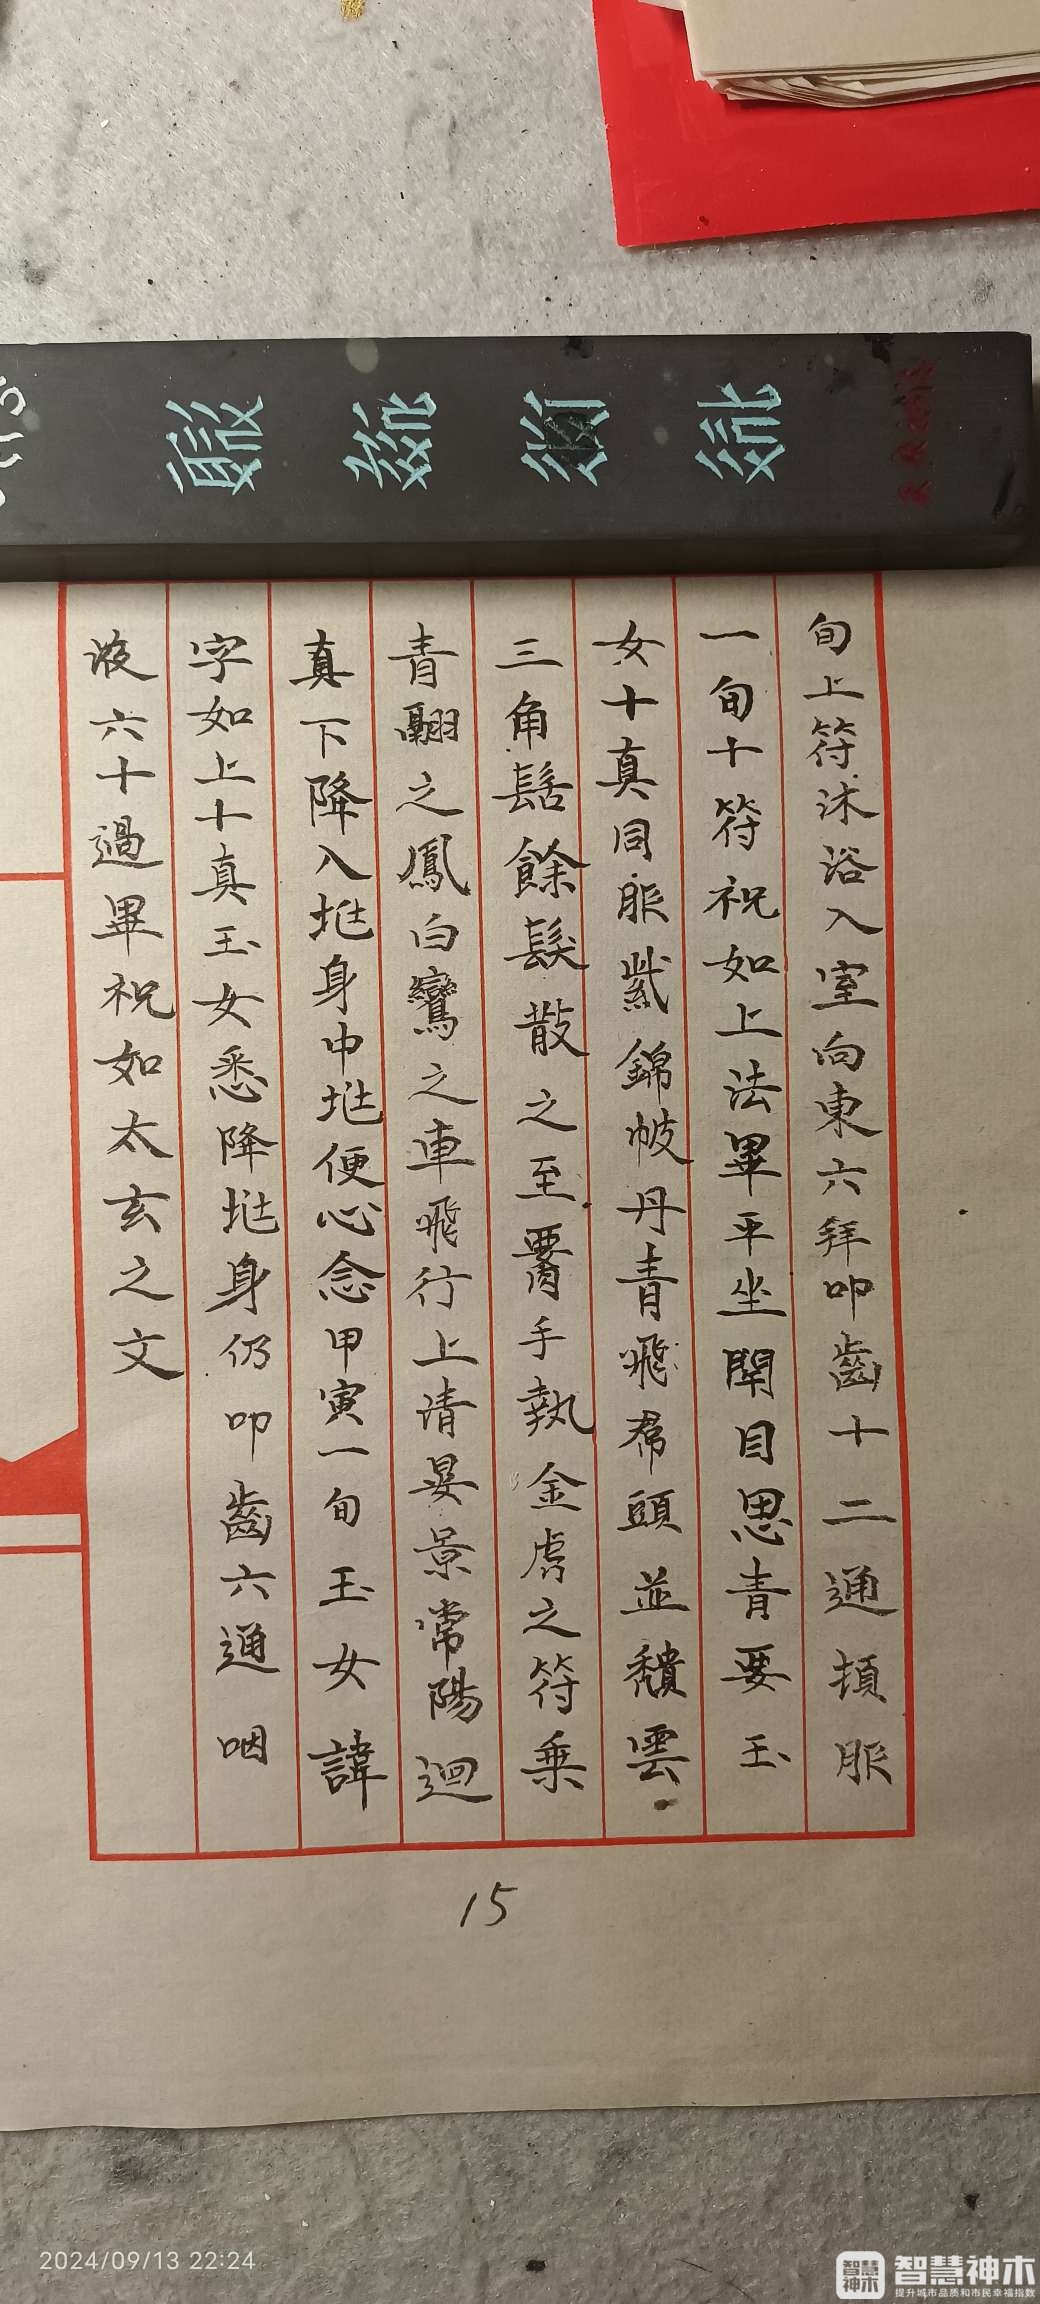 旬上符沐浴入室向東六拜叩齒十二通頓服
一旬十符祝如上法畢平坐閉目思青要玉
女十真同服紫錦帔丹青飛帬頭並穨雲
三角髻餘髮散之至腰手執金虎之符乗
青翮之鳳白鸞之車飛行上清晏景常陽迴
真下降入地身中地便心念甲寅一旬玉女諱
字如上十真玉女悉降地身仍叩齒六通咽
液六十過畢祝如太玄之文
15
2024/09/13 22:24
智慧神木
智慧神木
提升城市品质和市民幸福指数